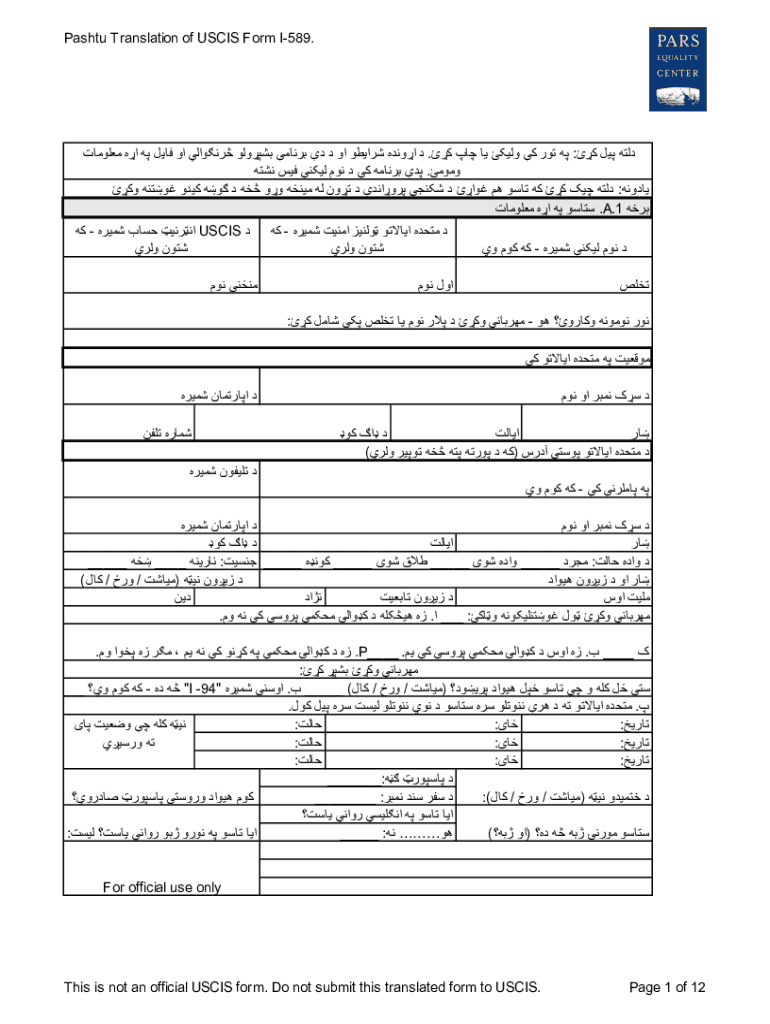 Pashtu Translation of USCIS Form I-589.
PARS
EQUALITY
CENTER
دلته پیل کړئ: په تور کې ولیکئ یا چاپ کړئ. د اړونده شرایطو او د دې برنامې بشپړولو څرنګوالي او فایل په اړه معلومات
ومومئ. پدې برنامه کې د نوم لیکنې فیس نشته
یادونه: دلته چیک کړئ که تاسو هم غواړئ د شکنجې پروړاندې د تړون له مینځه وړو څخه د ګوښه کیدو غوښتنه وکړئ
برخه A.1. ستاسو په اړه معلومات
د نوم لیکنې شمیره - که کوم وي
د متحده ایالاتو ټولنیز امنیت شمیره - که شتون ولري
د USCIS انټرنیټ حساب شمیره - که شتون ولري
تخلص
اول نوم
منځنی نوم
نور نومونه وکاروئ؟ هو - مهرباني وکړئ د پلار نوم یا تخلص پکې شامل کړئ:
موقعیت په متحده ایالاتو کې
د سړک نمبر او نوم
د اپارتمان شمیره
ښار
ایالت
د ډاګ کوډ
شماره تلفن
د متحده ایالاتو پوستي آدرس (که د پورته پته څخه توپیر ولري)
د تلیفون شمیره
په پاملرنې کې - که کوم وي
د سړک نمبر او نوم
د اپارتمان شمیره
ښار
ایالت
د ډاګ کوډ
د واده حالت: مجرد _____ واده شوی _____ طلاق شوی _____ کونډه _____
جنسیت: نارینه _____ ښځه _____
ښار او د زیږون هیواد
د زیږون نیټه (میاشت / ورځ / کال)
ملیت اوس
د زیږون تابعیت
نژاد
دین
مهرباني وکړئ ټول غوښتلیکونه وټاکئ: ____ ا. زه هیڅکله د کډوالۍ محکمې پروسې کې نه وم.
ک _____ ب. زه اوس د کډوالۍ محکمې پروسې کې یم. _____P. زه د کډوالۍ محکمې په کړنو کې نه یم ، مګر زه پخوا وم.
مهرباني وکړئ بشپړ کړئ:
ستې ځل کله و چې تاسو خپل هیواد پریښود؟ (میاشت / ورځ / کال) ______ ب. اوسنی شمیره "I -94" څه ده - که کوم وي؟
پ. متحده ایالاتو ته د هرې ننوتلو سره ستاسو د نوي ننوتلو لیست سره پیل کول.
تاریخ:
ځای:
حالت:
نیټه کله چې وضعیت پای ته ورسیږي
تاریخ:
ځای:
حالت:
تاریخ:
ځای:
حالت:
د ختمیدو نیټه (میاشت / ورځ / کال):
د پاسپورټ ګڼه: _______
د سفر سند نمبر: _______
کوم هیواد وروستی پاسپورټ صادروي؟
ستاسو مورنۍ ژبه څه ده؟ (او ژبه؟)
ایا تاسو په انګلیسي رواني یاست؟
هو......... نه: _____
ایا تاسو په نورو ژبو رواني یاست؟ لیست:
For official use only
This is not an official USCIS form. Do not submit this translated form to USCIS.
Page 1 of 12